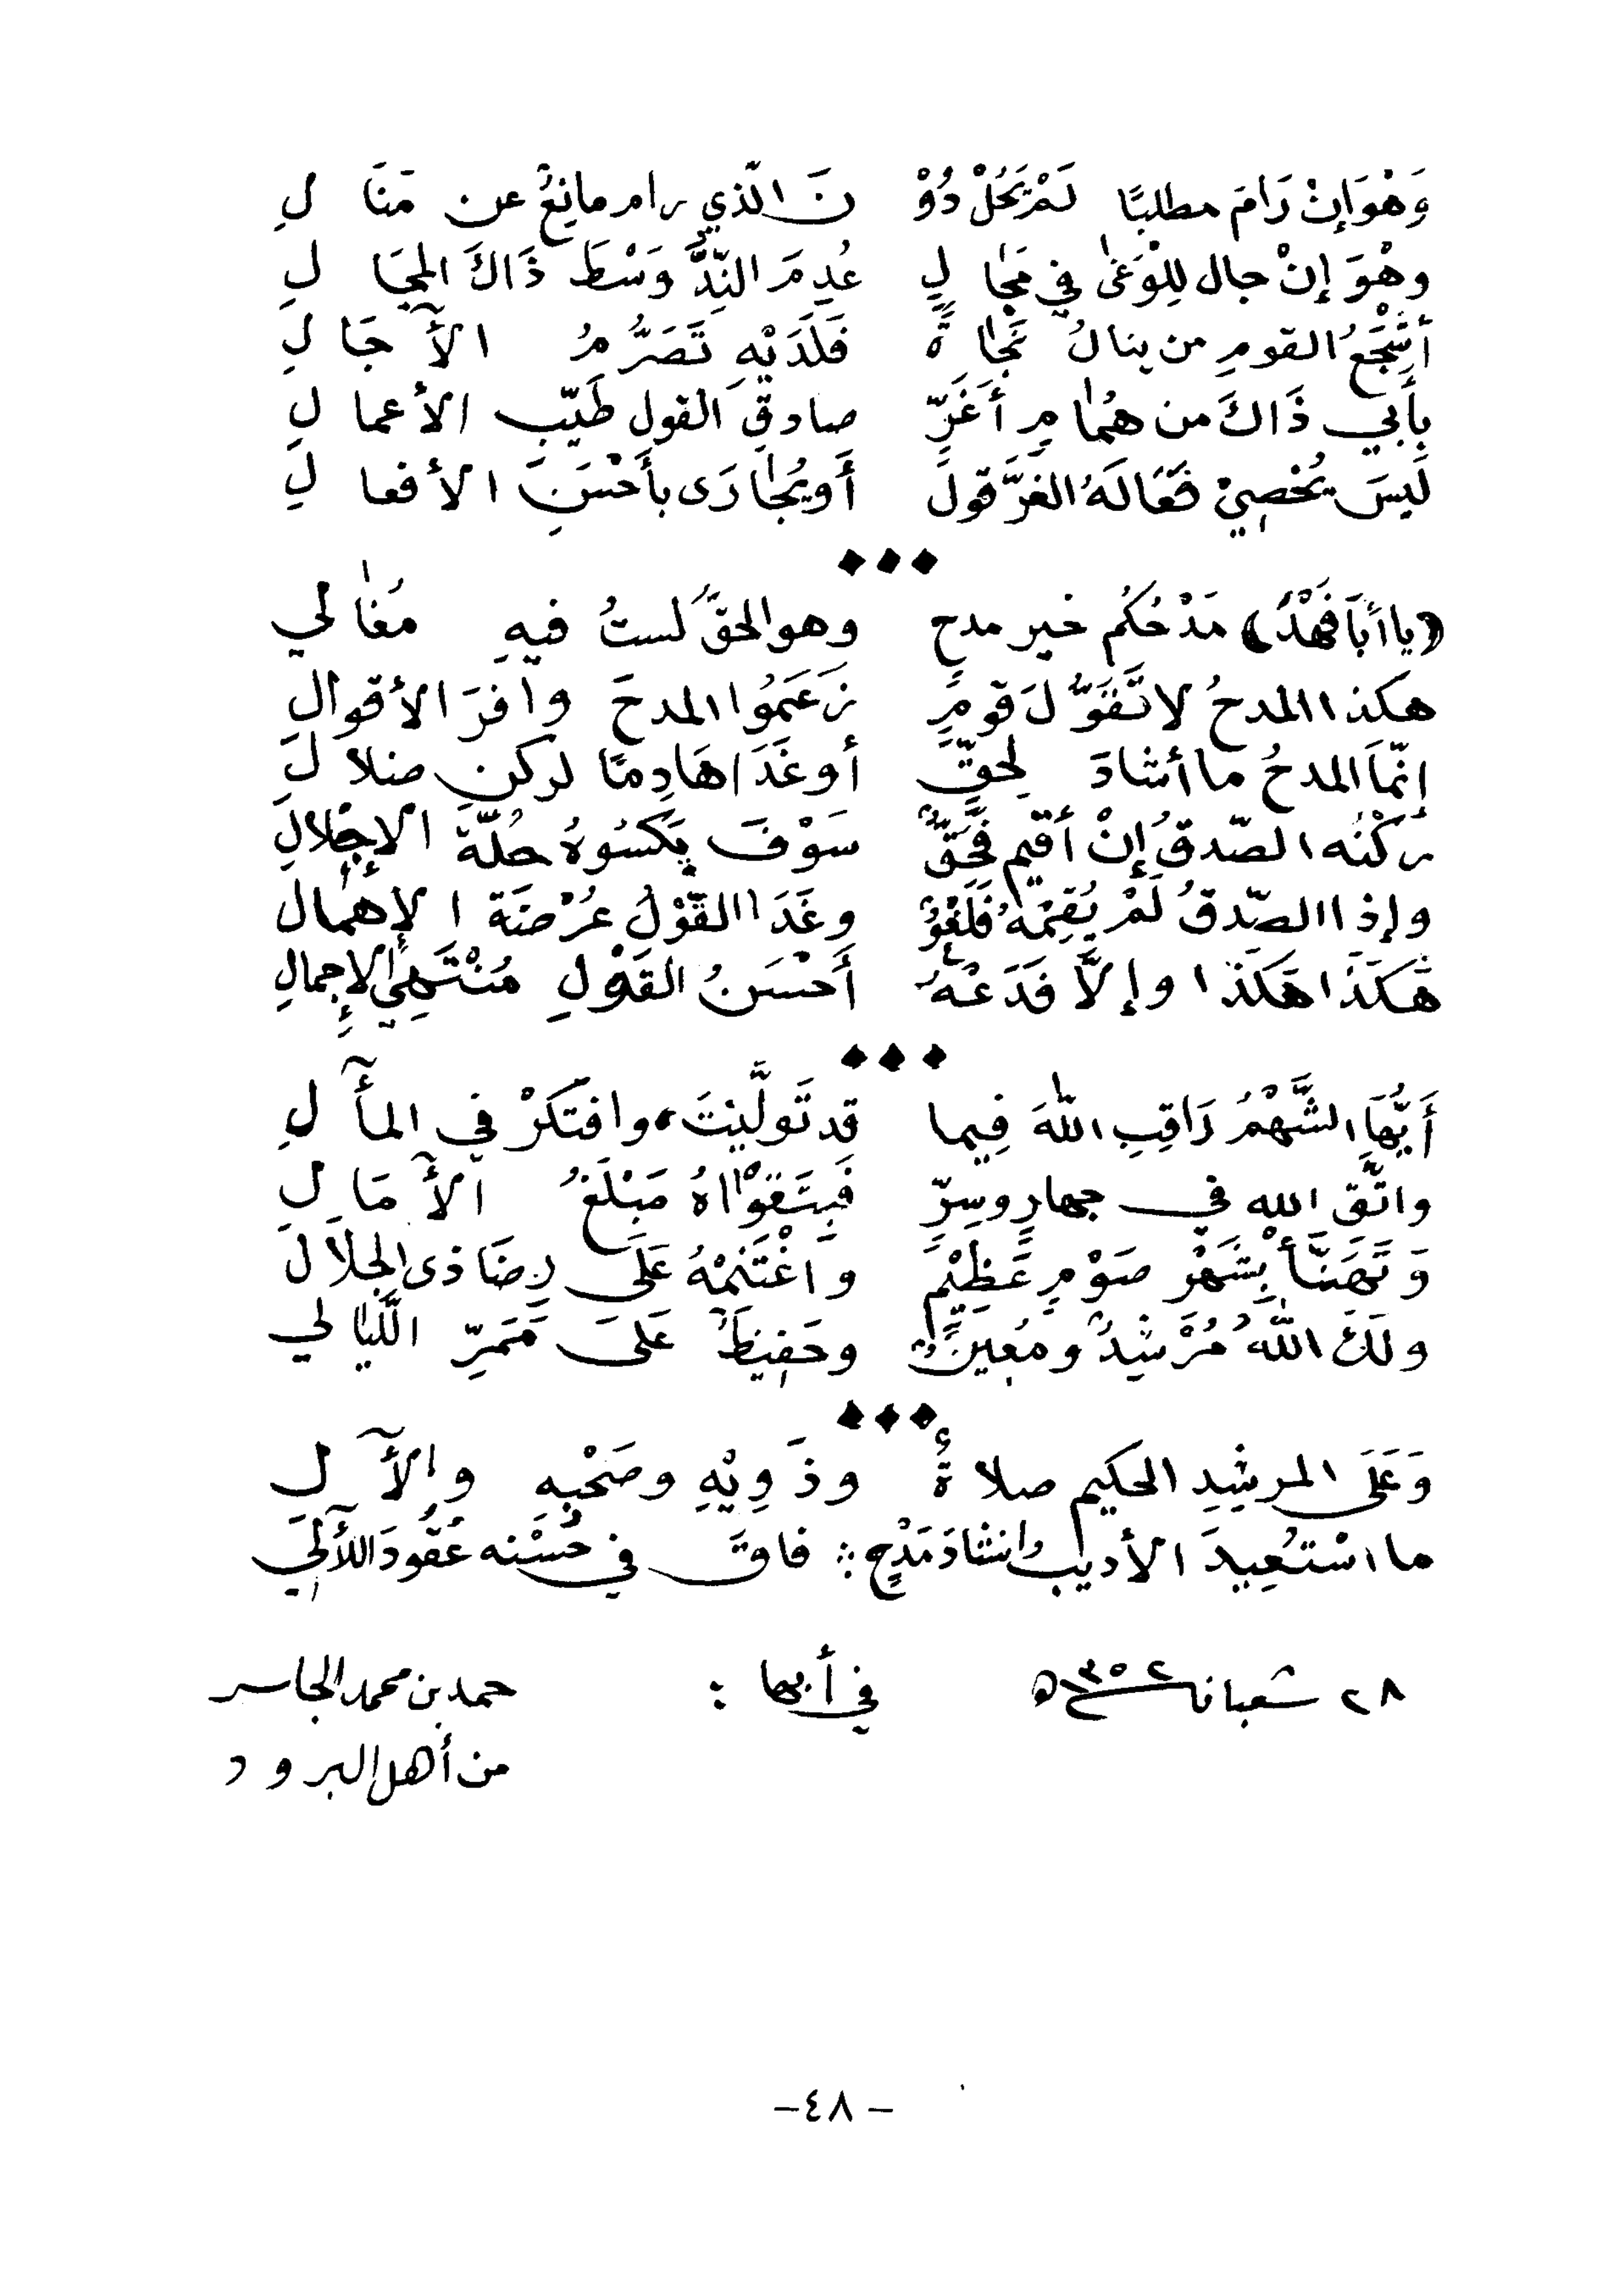 وَهْوَ إِنْ رَامَ مطلبًا لَمْ يَحُلْ دُوْ نَ الّذي رام مانِعٌ عن مَنَالِ
وهْوَ إِنْ جال لِلْوَغىٰ في مَجَالٍ عُدِمَ النِّدُّ وَسْطَ ذَاكَ المجَالِ
أَشْجَعُ القومِ من ينالُ نَجَاةً فَلَدَيْهِ تَصَرُّمُ الآجَالِ
بِأَبي ذَاكَ من هُمَامٍ أَغَرّ صادقِ القول طَيّبِ الأعمالِ
لَيسَ يُحْصِيْ فَعَالَهُ الغرَّ قول أَو يُجَارَى بأَحْسَنِ الأفعالِ
﴿يا أَبَا فَهْدَ﴾ مَدْحُكُم خير مدحٍ وهو الحقّ لستُ فيهِ مغَالي
هكذا المدحُ لا تَقَوُّلَ قومٍ زَعَمُوا المدحَ وافرَ الأقوالِ
إنّمَا المدحُ ما أشادَ لحقّ أو غَدَا هَادِمًا لركنِ ضلالِ
ركْنُه الصّدقُ إنْ أُقيم فَحَقٌّ سَوْفَ يَكْسُوهُ حُلّةَ الإِجْلالِ
وإذا الصّدقُ لَمْ يُقِمْهُ فَلَغْوٌ وغَدَا القَوْلُ عُرْضَةَ الإِهمالِ
هَكَذَا هَكَذَا وإلَّا فَدَعْهُ أَحْسَنُ القَوْلِ مُنْتَهِي الإِجمالِ
أَيُّهَا الشَّهْمُ رَاقِبِ اللّٰهَ فِيما قد تَولَّيْتَ، وافتكرْ في المآلِ
واتّقِ الله في جهارٍ وسِرّ فَبِتَقْوَاهُ مَبْلَغُ الآمَالِ
وَتَهَنَّأْ بِشَهْرِ صَوْمٍ عَظِيْمٍ وَاغْتَنِمْهُ عَلَى رِضَا ذى الجلَالِ
ولَكَ اللّٰهُ مُرْشِدٌ ومُعِينٌ وحَفِيظٌ عَلَى مَمَرّ اللَّيَالي
وَعَلَى المرشِدِ الحكيم صلاةٌ وذَوِيْهِ وصَحْبِهِ والآلِ
ما اسْتُعِيدَ الأديب وانشادَ مَدْحٍ ؞ فاقَ في حُسْنه عُقُودَ اللآلِي
٢٨ شعبان ١٣٥٢ ه في أبها : حمد بن محمد الجاسر
من أهل البرود
- ٤٨ -